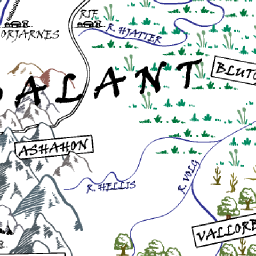 RJE
ORJARNES
R. HJATTER
ALANT
BLUTO
ASHAHON
R. HELLIS
R. VOLG
VALLORE